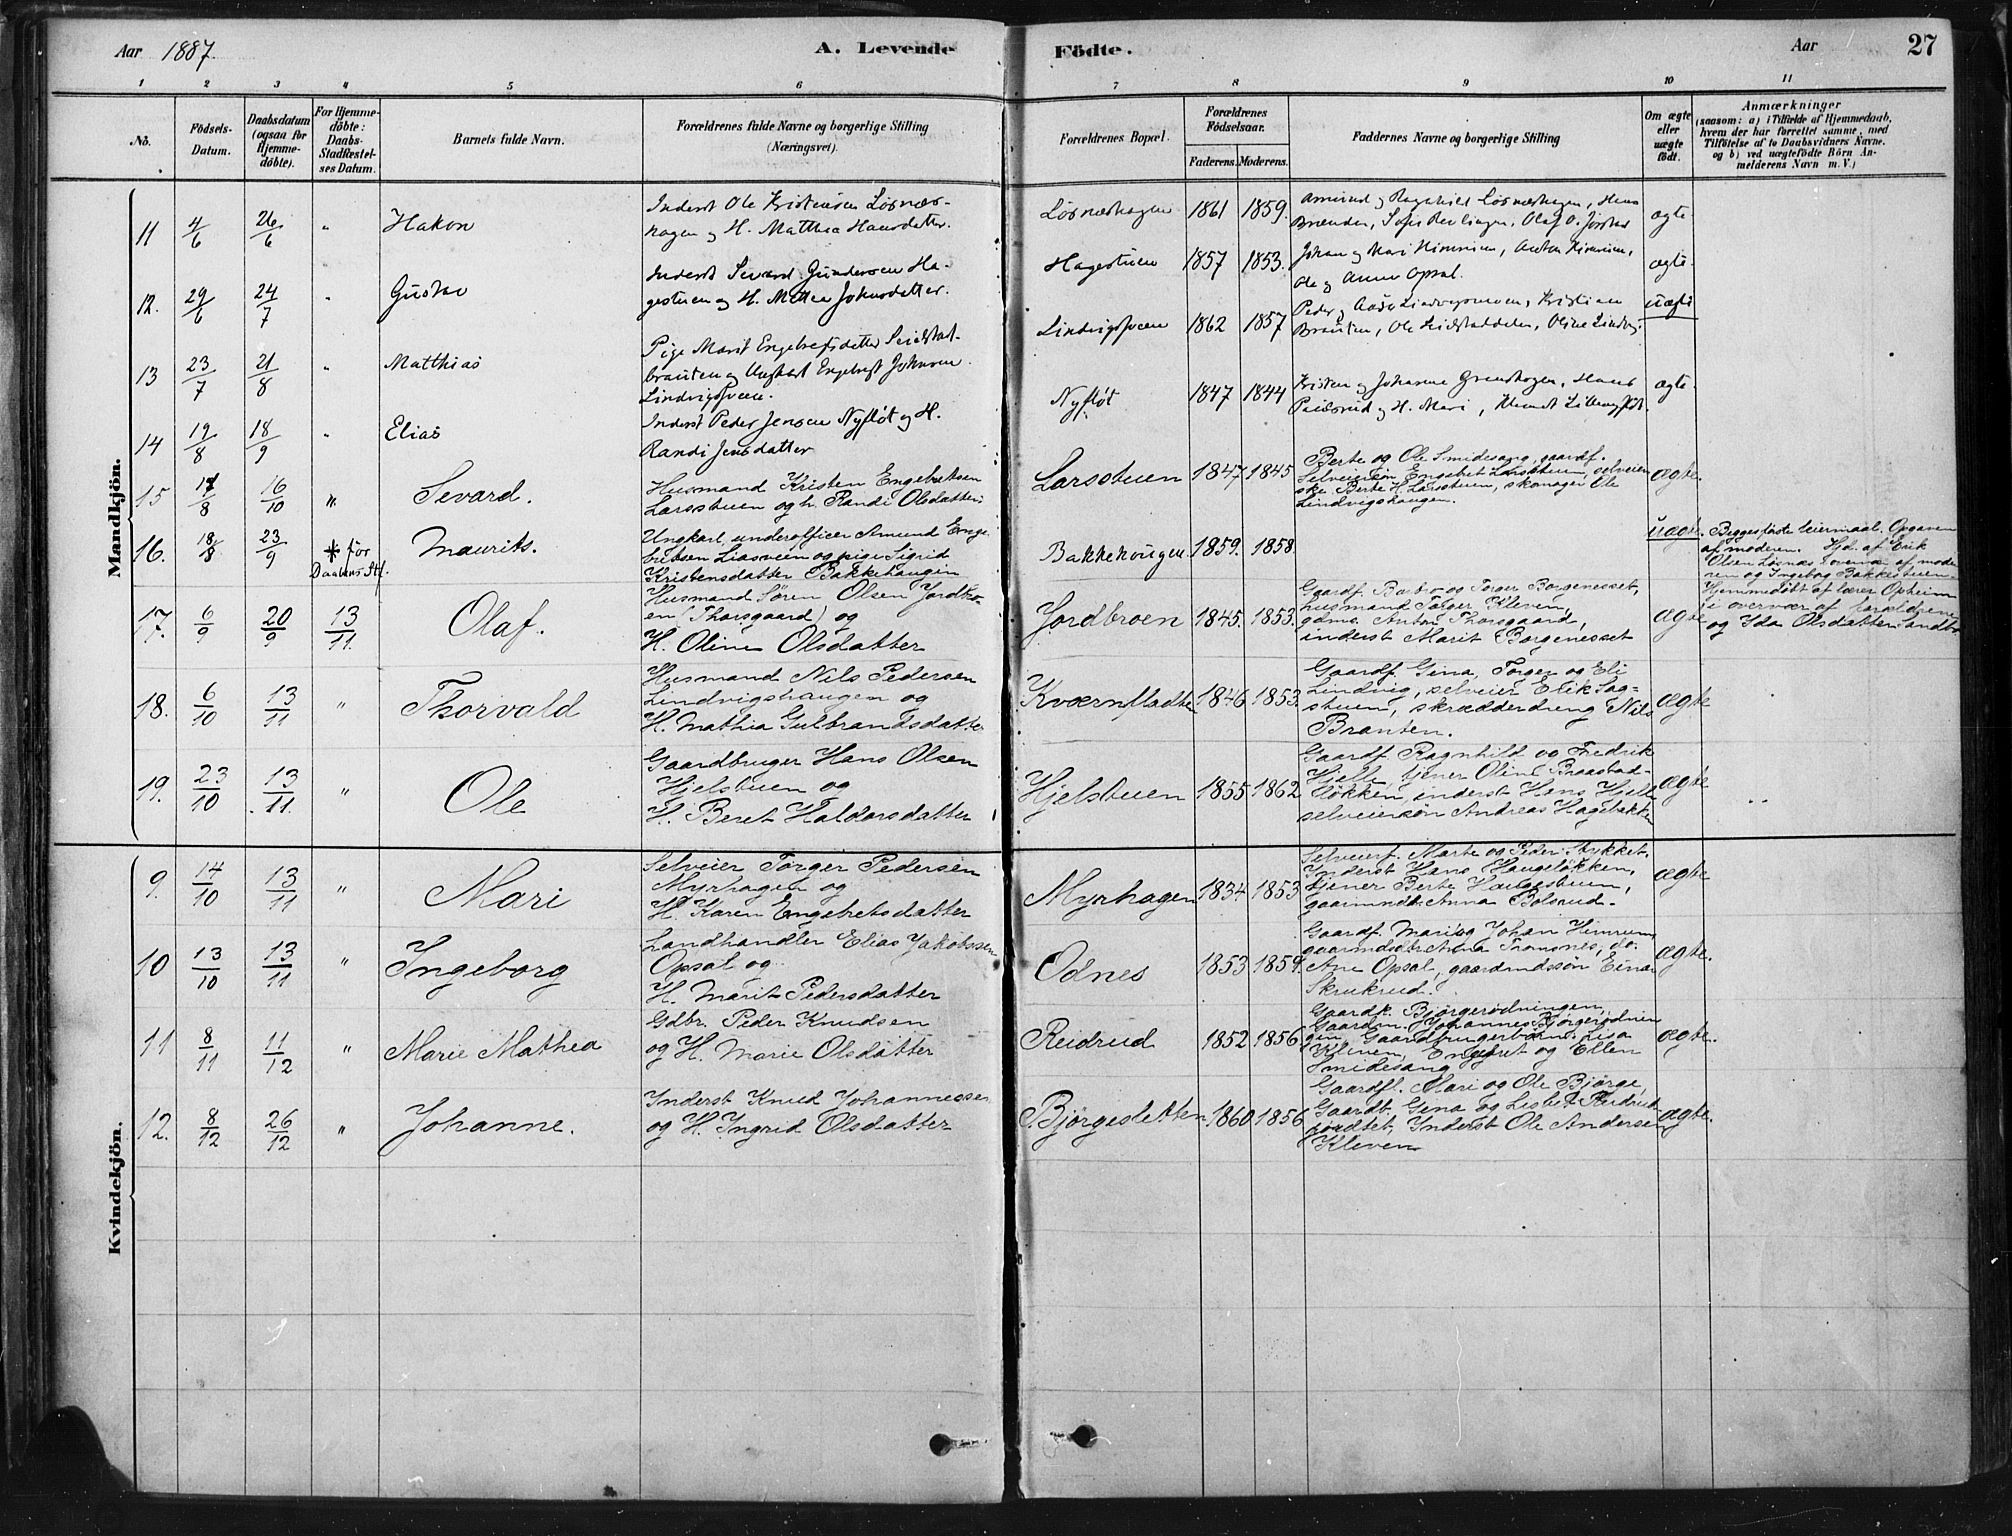 Aar 1887.
A. Levende
Födte.
Aar
27
1 2 3 4 5 6 7 8 9 10 11
No.
Födsels-
Datum.
Daabsdatum
(ogsaa for
Hjemme-
döbte).
For Hjemme-
döbte:
Daabs-
Stadfæstel-
ses Datum.
Barnets fulde Navn.
Forældrenes fulde Navne og borgerlige Stilling
(Næringsvei).
Forældrenes Bopæl.
Forældrenes
Födselsaar.
Faderens. Moderens.
Faddernes Navne og borgerlige Stilling
Om ægte
eller
uægte
födt.
Anmærkninger
(saasom: a) i Tilfælde af Hjemmedaab,
hvem der har forrettet samme, med
Tilföielse af to Daabsvidners Navne.
og b) ved uægtefödte Börn An-
melderens Navn m. V.)
Mandkjön.
11 4/6 26/6 " Hakon
Inderst Ole Kristensen Løsnæs-
hagen og H. Matthea Hansdatter.
Løsnæshagen 1861 1859.
Amund og Ragnhild Løsnæshagen, Hans
ægte
12. 29/6 24/7 " Gustav
Inderst Sevard Gundersen Ha-
gestuen og H. Mathea Johnsdatter.
Hagestuen 1857 1853.
Johan og Mari Himrum, Anton Himrum,
Ole og Anne Opsal.
ægte.
13 23/7 21/8 " Matthias
Pige Marit Engebretsdatter
brauten og Ungkarl Engebret Johnsen
Lindvigsveen.
Lindvigsveen 1862 1857
Peder og Aase Lindvigsmoen, Kristian
Brauten, Ole
uægte
14 19/8 18/9 " Elias
Inderst Peder Jensen Nyfløt og H.
Randi Jensdatter
Nyfløt 1847 1844
Kristen og Johanne Grendhagen, Hans
og H. Mari,
ægte.
15 17/8 16/10 " Sevard.
Husmand Kristen Engebretsen
Larsstuen og h. Randi Olsdatter
Larsstuen 1847 1845
Berte og Ole Smidesang, gaardf.
Selveiersøn Engebret Larsstuen, selveier-
ske Berte H. Larsstuen, skomager Ole
Lindvigshaugen.
ægte.
16. 18/8 23/9 * før
Daabens Stf.
Maurits.
Ungkarl, underofficer Amund Enge-
bretsen Liasveen og pige Sigrid
Kristensdatter Bakkehaugen
Bakkehougen 1859. 1858.
uægte.
Begges første leiermaal. Opgaven
af moderen. Hjd. af Erik
Olsen Løsnæs i overvær af mode-
ren og Ingeborg Bakkestuen.
Hjemmedøbt af lærer Opheim
i overvær af forældrene
og Ida Olsdatter Sandbo
17. 6/9 20/9 13/11 Olaf.
Husmand Søren Olsen Jordbro-
en (Thorsgaard) og
H. Oline Olsdatter
Jordbroen 1845. 1853.
Gaardf. Barbro og Torger Borgenesset,
husmand Torger Kleven,
gdms. Anton Thorsgaard,
inderst Marit Borgenesset
ægte
18. 6/10 13/11 " Thorvald
Husmand Nils Pedersen
Lindvigshaugen og
H. Mathia Gulbrandsdatter
Kværnfladten 1846 1853.
Gaardf. Gina, Torger og Eli
Lindvig, selveier Erik Sag-
stuen, skrædderdreng Nils
Branten.
ægte
19. 23/10 13/11. " Ole
Gaardbruger Hans Olsen
Hjelstuen og
H. Beret Haldorsdatter
Hjelstuen 1855 1862
Gaardf. Ragnhild og Fredrik
Hjelle, tjener Oline Braastad-
løkken, inderst Hans Hjelle
selveiersøn Andreas Hagebakken
ægte
Kvindekjön.
9. 14/10 13/11 " Mari
Selveier Torger Pedersen
Myrhagen og
H. Karen Engebretsdatter
Myrhagen 1834 1853
Selveierf. Marte og Peder Stykket,
Inderst Hans Haugsløkken,
tjener Berte Haugestuen,
gaarmndt. Anna Bolsrud.
ægte
10 13/10 13/11 " Ingeborg
Landhandler Elias Jakobsen
Opsal og
H. Marit Pedersdatter
Odnes 1853 1859.
Gaardf. Mari og Johan Himrum,
gaarmdsdtr. Anna Tramsnes, do.
Ane Opsal, gaardmdssøn Einar
Skrukrud.
ægte.
11 8/11 11/12 " Marie Mathea
Gdbr. Peder Knudsen
og H. Marie Olsdatter
Reidrud 1852 1856
Gaardk. Bjørgerødningen,
Gaardm. Johannes Bjørgerødnin
gen, Gaardbrugerbørn: Lisa
Kleven, Engebret og Ellen
Smidesang
ægte.
12. 8/12 26/12 " Johanne.
Inderst Knud Johannessen
og H. Ingrid Olsdatter
Bjørgesletten 1860 1856
Gaardfl. Mari og Ole Bjørge,
Gaardb. Gina og Lisbet Reidrud-
jordtet, Inderst Ole Andersen
Kleven
ægte.